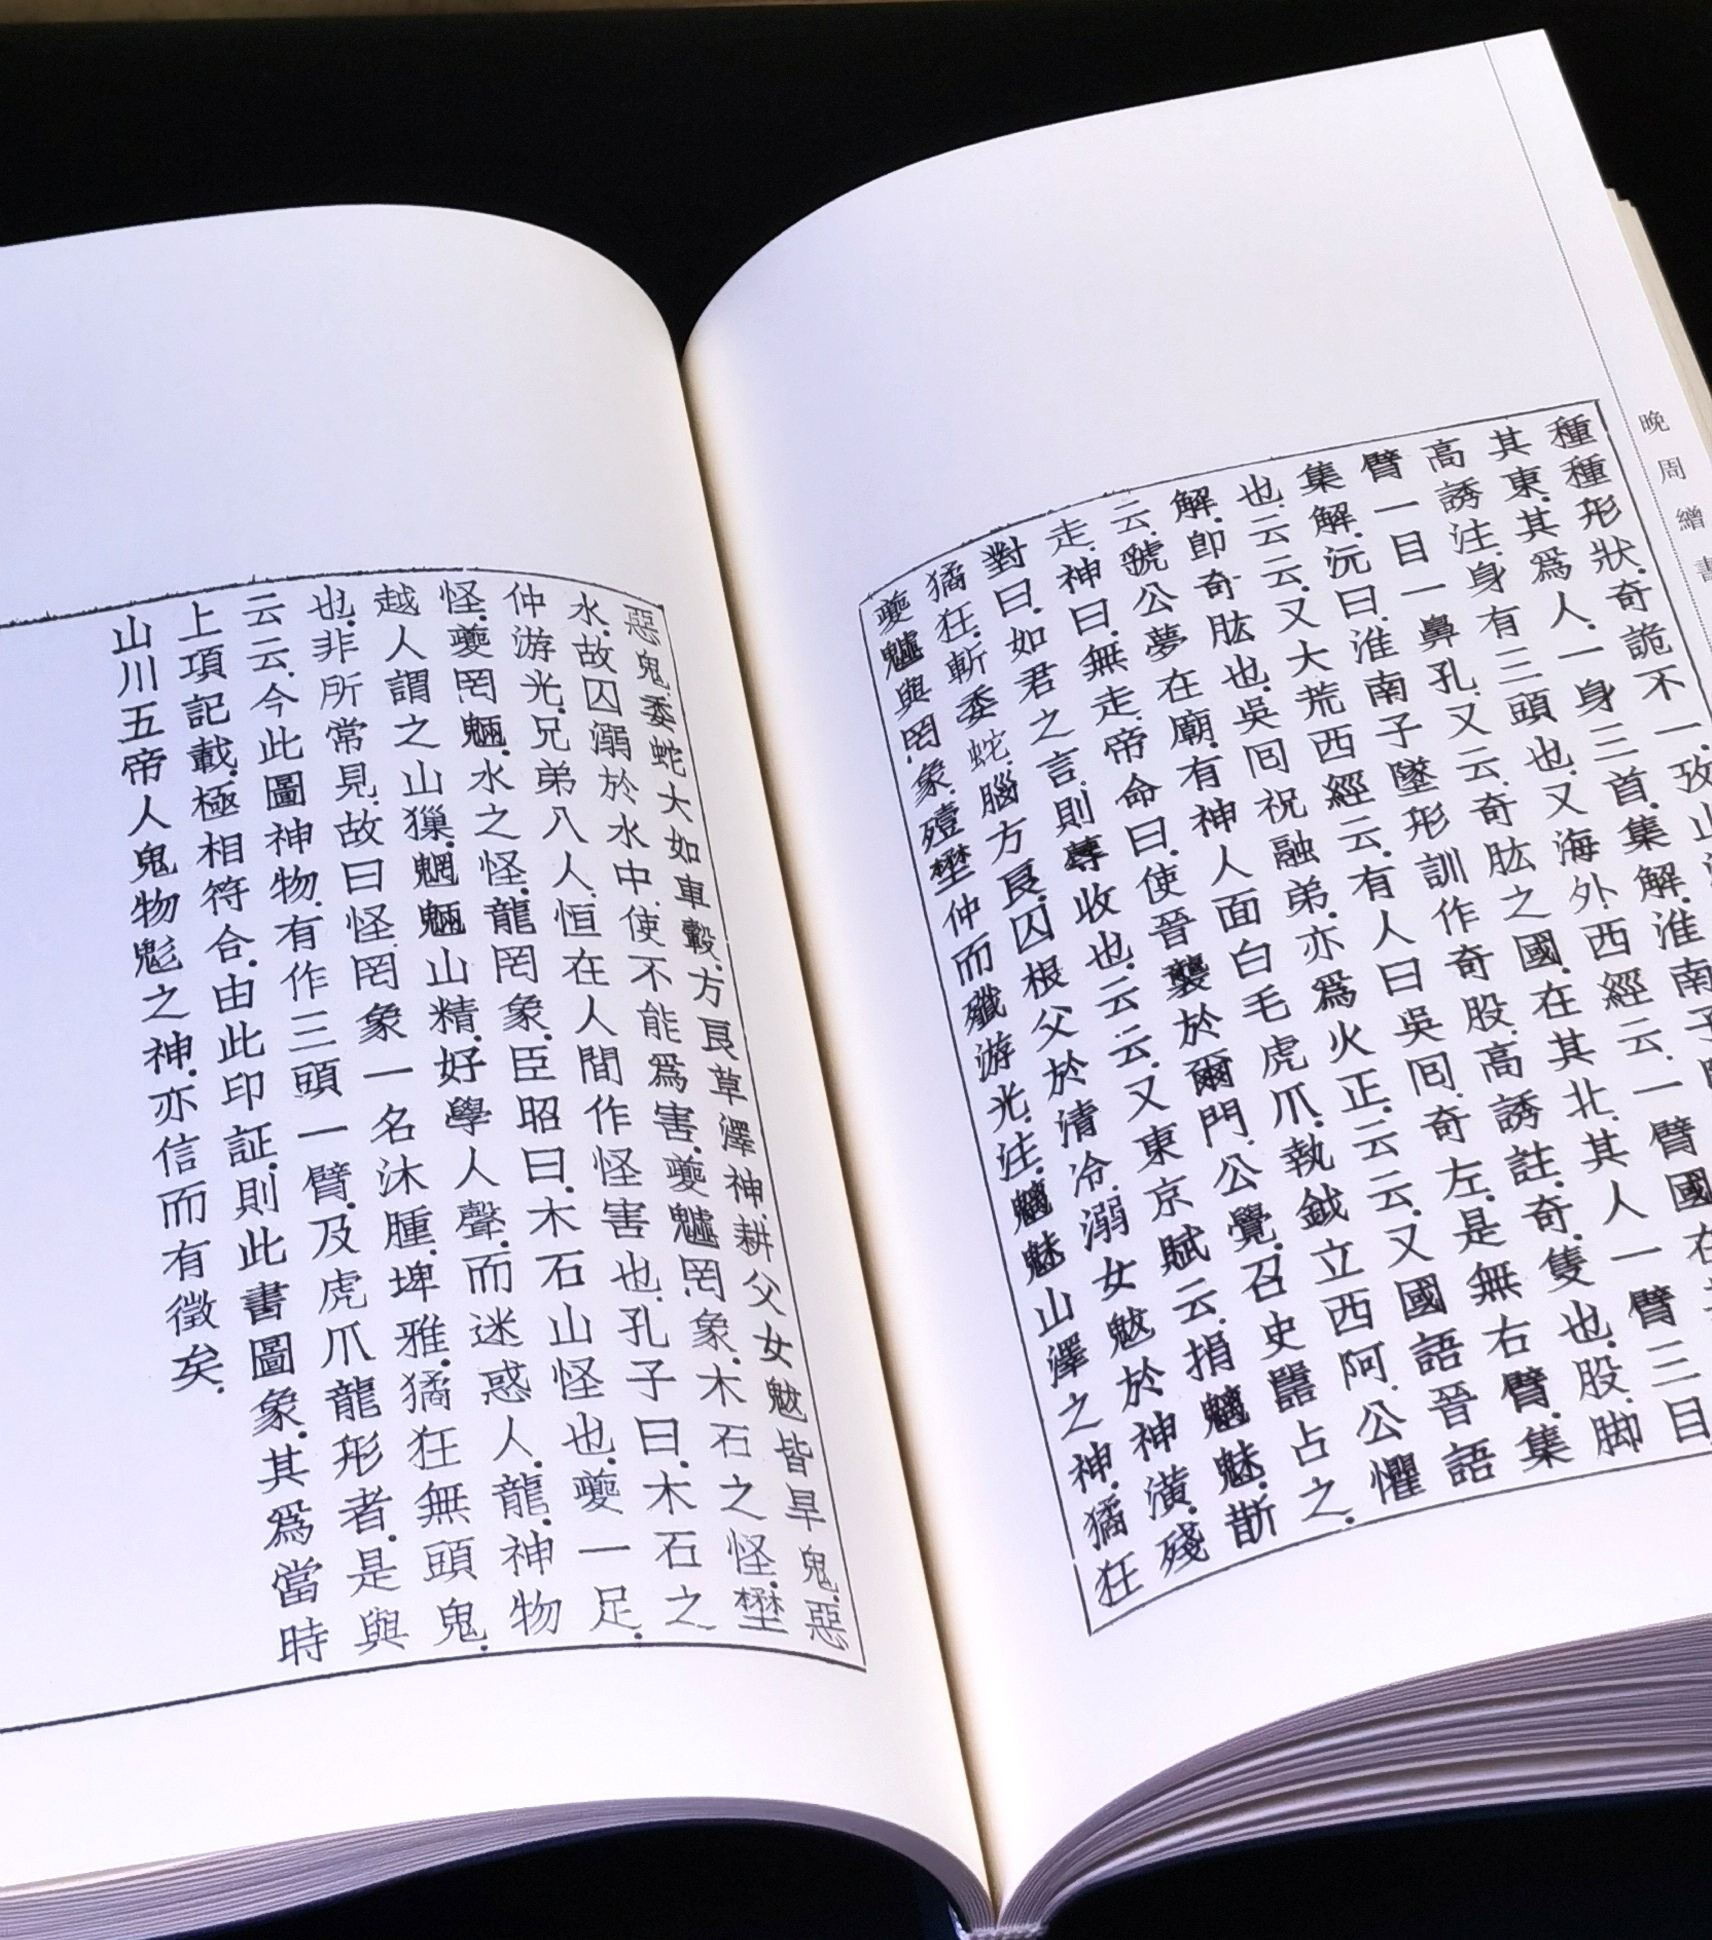 晚周繒書
種種形狀.奇詭不一.攷山
其東.其爲人.一身三首.集解.淮南子
高誘注.身有三頭也.又海外西經云.一臂國在
臂一目一鼻孔.又云.奇肱之國.在其北.其人一臂三目
集解.沅曰.淮南子墬形訓作奇股.高誘註.奇.隻也.股.脚
也.云云.又大荒西經云.有人曰吳回.奇左.是無右臂.集
解.卽奇肱也.吳回祝融弟.亦爲火正.云云.又國語晉語
云.虢公夢在廟.有神人面白毛虎爪.執鉞立西阿.公懼
走.神曰.無走.帝命曰.使晉襲於爾門.公覺.召史嚚占之.
對曰.如君之言.則蓐收也.云云.又東京賦云.捎魑魅.斮
獝狂.斬委蛇.腦方良.囚根父於清冷.溺女魃於神潢.殘
夔魖與罔象.殪壄仲而殲游光.注.魑魅山澤之神.獝狂
惡鬼.委蛇大如車轂.方良草澤神.耕父女魃皆旱鬼.惡
水.故囚溺於水中.使不能爲害.夔魖罔象.木石之怪.壄
仲游光.兄弟八人.恒在人間作怪害也.孔子曰.木石之
怪.夔罔魎.水之怪.龍罔象.臣昭曰.木石山怪也.夔一足.
越人謂之山𤢖.魍魎山精.好學人聲.而迷惑人.龍神物
也.非所常見.故曰怪罔象.一名沐腫.埤雅.獝狂無頭鬼.
云云.今此圖神物.有作三頭一臂.及虎爪龍形者.是與
上項記載.極相符合.由此印証.則此書圖象.其爲當時
山川五帝人鬼物鬽之神.亦信而有徵矣.